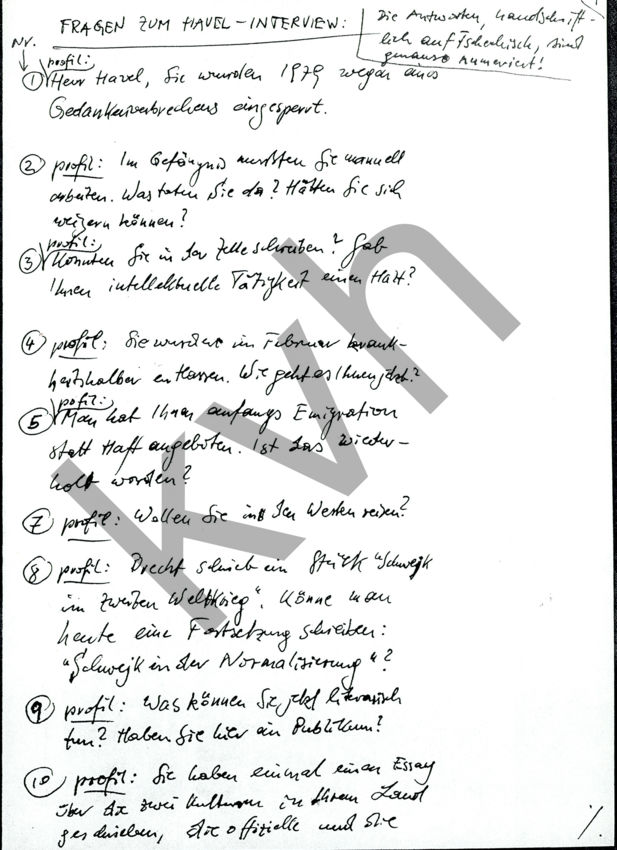 FRAGEN ZUM HAVEL-INTERVIEW:
Die Antworten, handschrift-
lich auf Tschechisch, sind
genauso numeriert!
Nr.
profil:
① Herr Havel, Sie wurden 1979 wegen eines
Gedankenverbrechens eingesperrt.
② profil: Im Gefängnis mußten Sie manuell
arbeiten. Was taten Sie da? Hätten Sie sich
weigern können?
profil:
③ Konnten Sie in der Zelle schreiben? Gab
Ihnen intellektuelle Tätigkeit einen Halt?
④ profil: Sie wurden im Februar krank-
heitshalber entlassen. Wie geht es Ihnen jetzt?
profil:
⑤ Man hat Ihnen anfangs Emigration
statt Haft angeboten. Ist das wieder-
holt worden?
⑦ profil: Wollen Sie in den Westen reisen?
⑧ profil: Brecht schrieb ein Stück "Schwejk
im zweiten Weltkrieg". Könne man
heute eine Fortsetzung schreiben:
"Schwejk in der Normalisierung"?
⑨ profil: Was können Sie jetzt literarisch
tun? Haben Sie hier ein Publikum?
⑩ profil: Sie haben einmal einen Essay
über die zwei Kulturen in Ihrem Land
geschrieben, die offizielle und die
./.
kvh